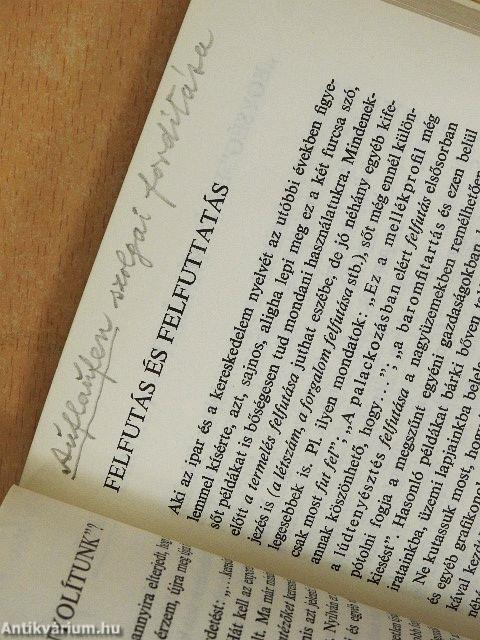 Aufläufen szolgai fordítása
FELFUTÁS ÉS FELFUTTATÁS
Aki az ipar és a kereskedelem nyelvét az utóbbi években figye-
lemmel kísérte, azt, sajnos, aligha lepi meg ez a két furcsa szó,
sőt példákat is bőségesen tud mondani használatukra. Mindenek-
előtt a termelés felfutása juthat eszébe, de jó néhány egyéb kife-
jezés is (a létszám, a forgalom felfutása stb.), sőt még ennél külön-
legesebbek is. Pl. ilyen mondatok: „Ez a mellékprofil még
csak most fut fel”; „A palackozásban elért felfutás elsősorban
annak köszönhető, hogy...”; „a baromfitartás és ezen belül
a lúdtenyésztés felfutása a nagyüzemekben remélhetően
pótolni fogja a megszűnt egyéni gazdaságokban
kiesést”. Hasonló példákat bárki bőven
iratainkba, üzemi lapjainkba
Ne kutassuk most,
és egyéb
kával
OLÍTUNK”?
annyira elterjedt,
érzem, újra meg
detést:
Hát kell az
dezni. Ma már
Antikvárium.hu